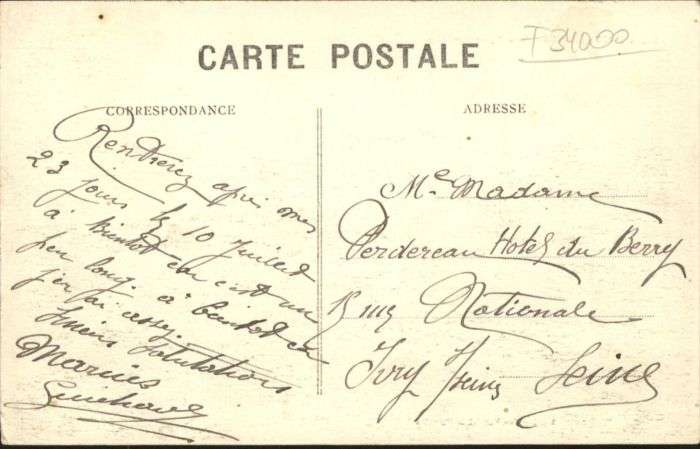 F 34000
CARTE POSTALE
CORRESPONDANCE
Rentrerez après mes
23 jours le 10 Juillet
à Bientot car c'est un
peu long. à bientot
j'en ai assez.
Salutations
Marius
ADRESSE
Me Madame
Perdereau Hotel du Berry
Rue Nationale
Ivry Seine